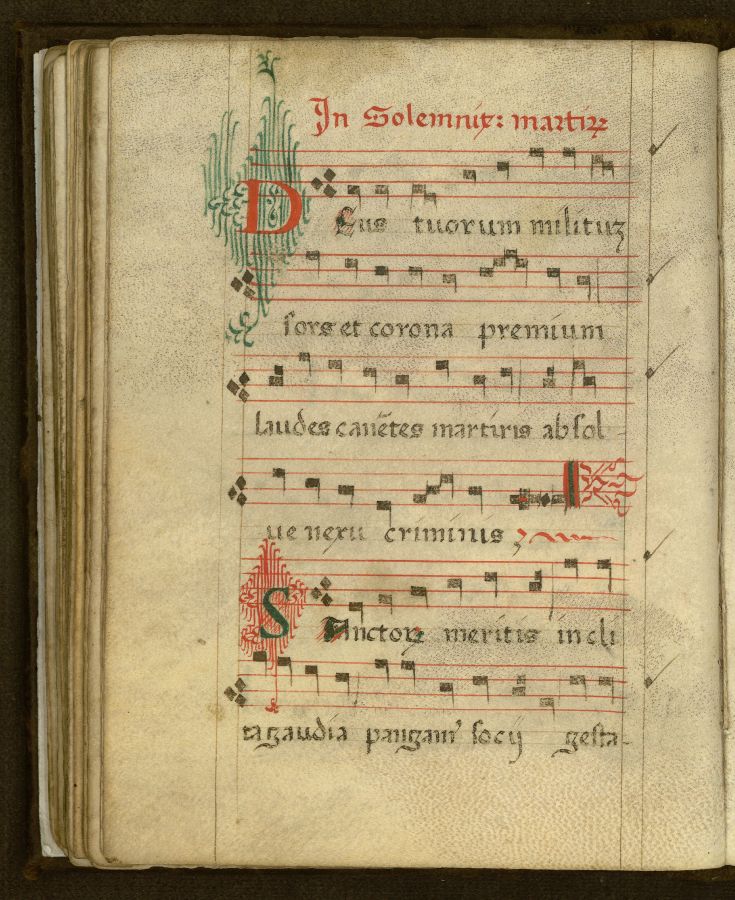 In Solemnit: martiꝝ
DEus tuorum milituʒ
sors et corona premium
laudes canētes martiris absol-
ue nexu criminis
SAnctoꝝ meritis incli
ta gaudia pangam' socij gesta-